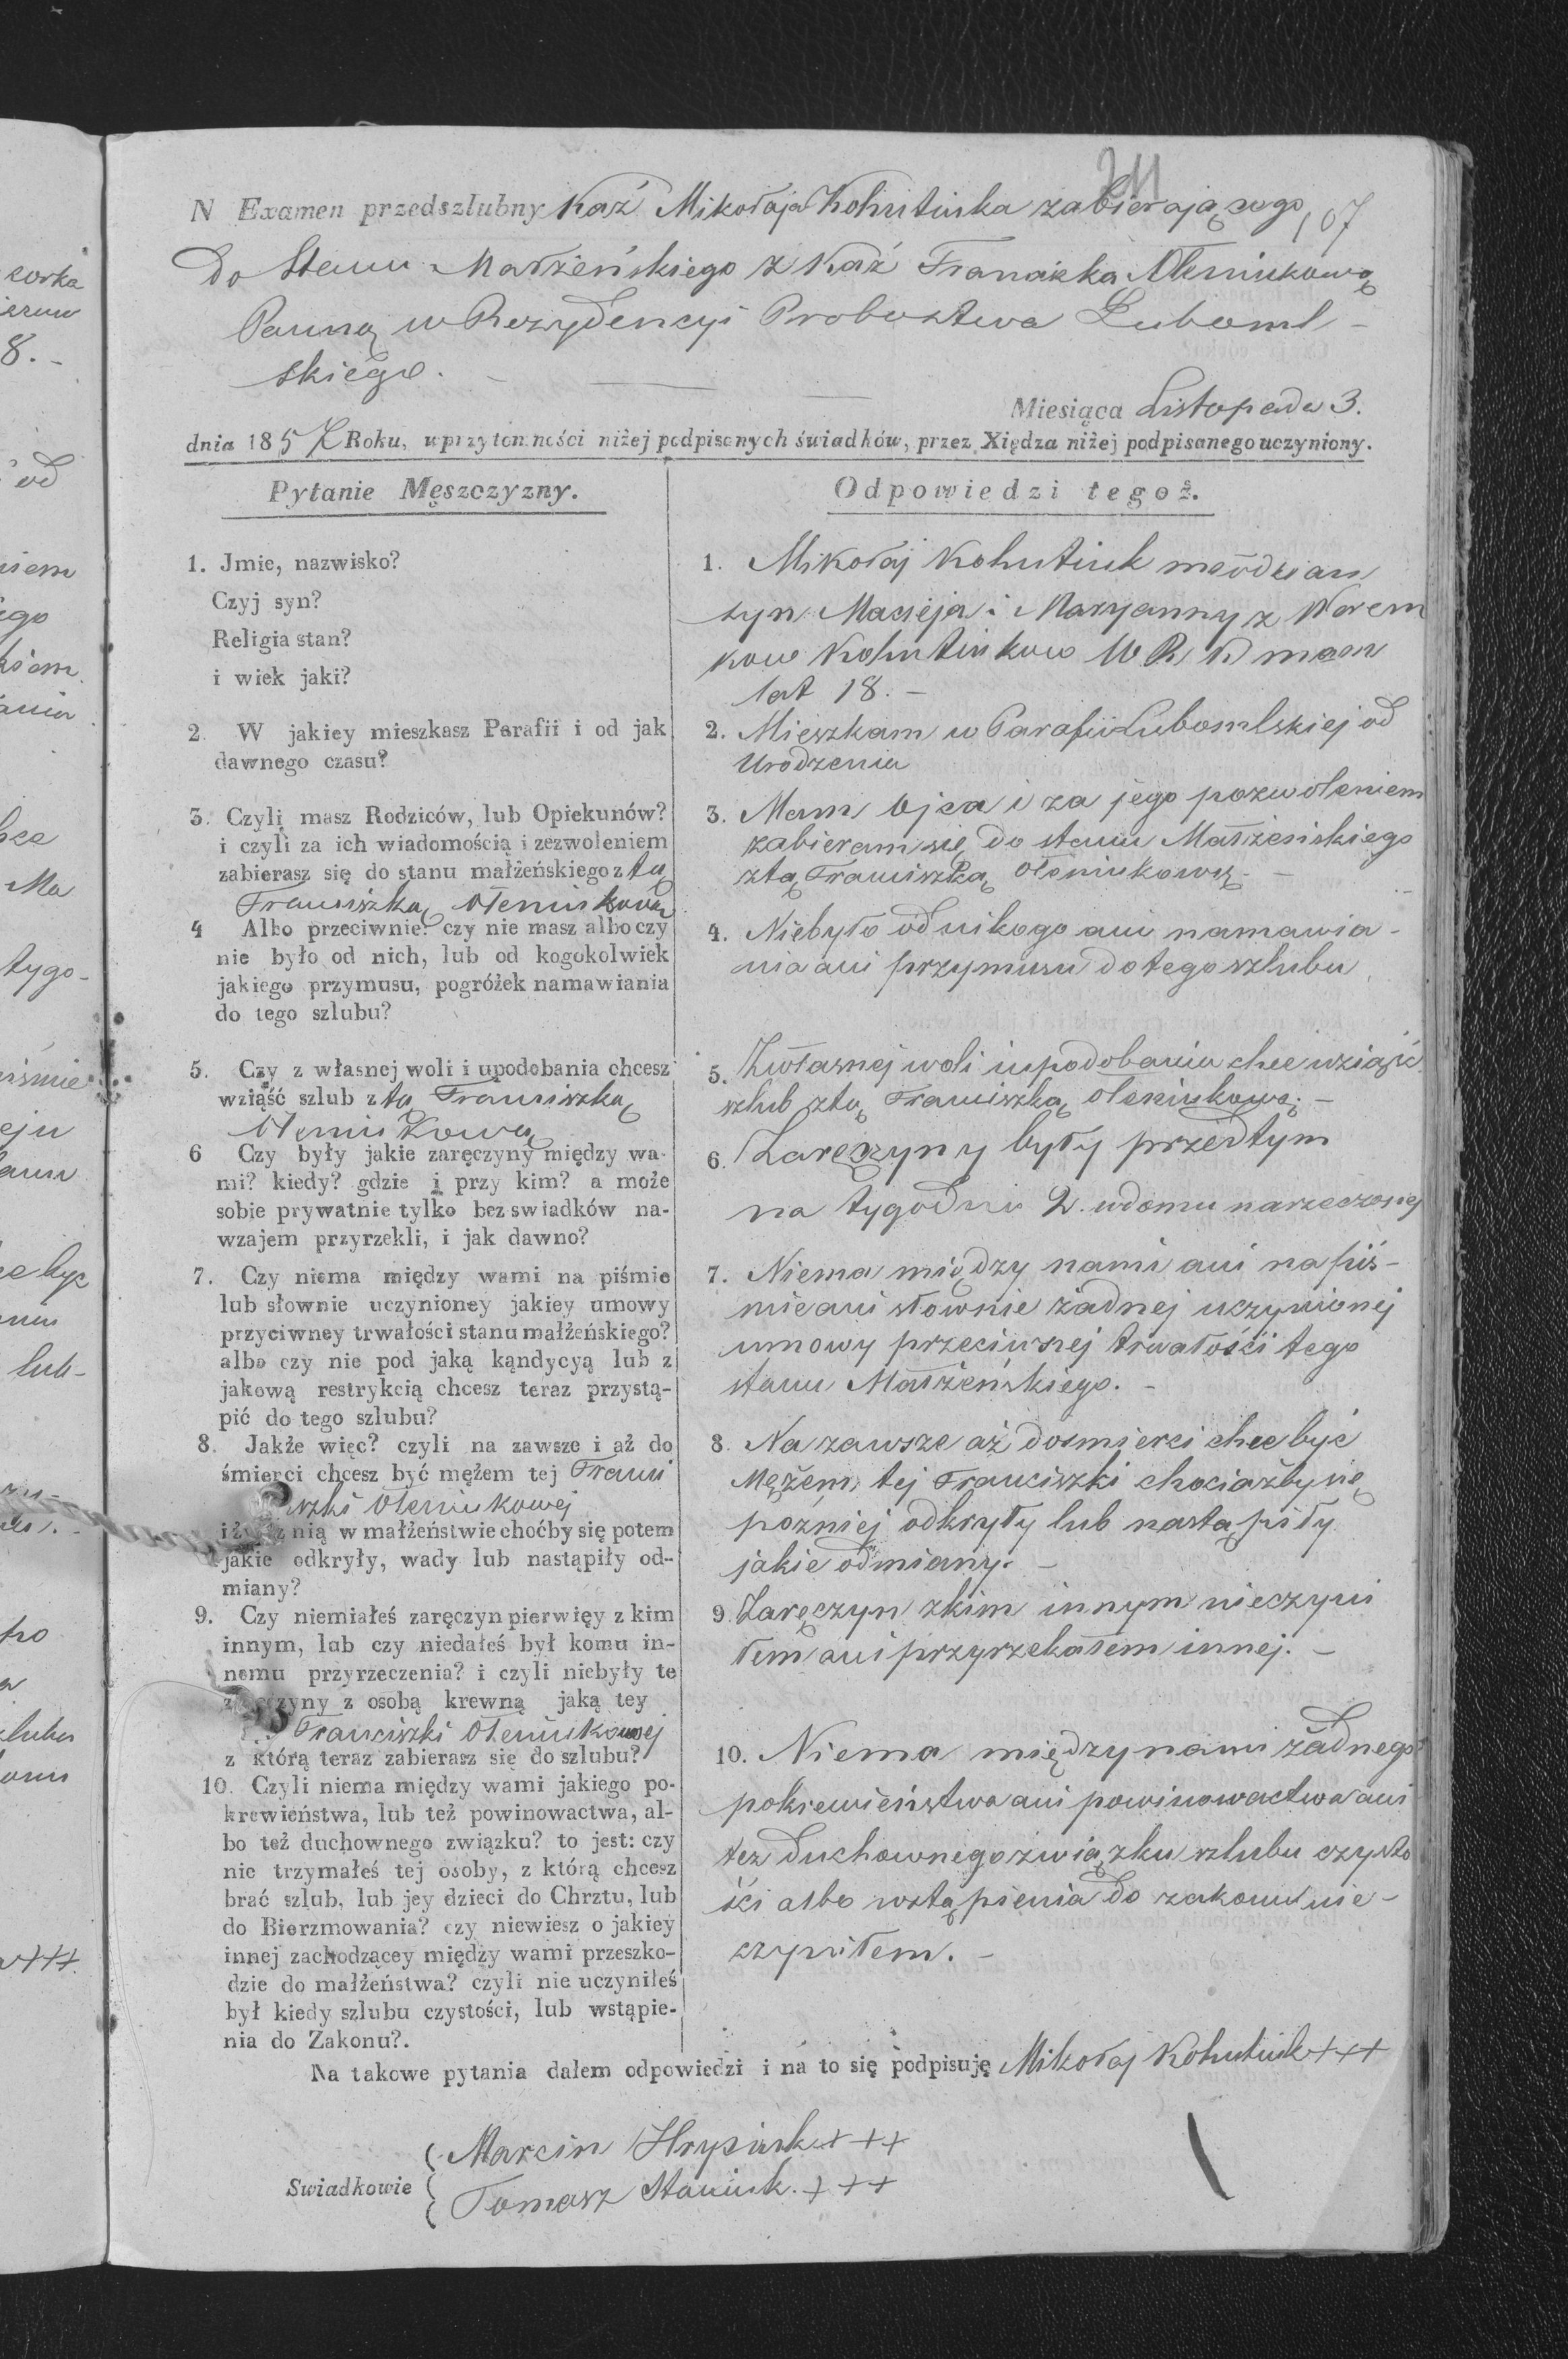 211
N Examen przedszlubny Kaź Mikołaja Kohutiuka zabierającego 107
Do Stanu Małżeńskiego z Kaź Franciszką Ołeniukową
Panną w Rezydencyi Probostwa Luboml-
skiego.
Miesiąca Listopada 3.
dnia 185 Roku, w przytomności niżej podpisanych świadków, przez Xiędza niżej podpisanego uczyniony.
Pytanie Męszczyzny.
1. Jmie, nazwisko?
Czyj syn?
Religia stan?
i wiek jaki?
2. W jakiey mieszkasz Parafii i od jak
dawnego czasu?
3. Czyli masz Rodziców, lub Opiekunów?
i czyli za ich wiadomością i zezwoleniem
zabierasz się do stanu małżeńskiego z tą
Franciszką Ołeniukową
4 Albo przeciwnie? czy nie masz albo czy
nie było od nich, lub od kogokolwiek
jakiego przymusu, pogróżek namawiania
do tego szlubu?
5. Czy z własnej woli i upodobania chcesz
wziąść szlub z tą Franciszką
Ołeniukową
6 Czy były jakie zaręczyny między wa-
mi? kiedy? gdzie i przy kim? a może
sobie prywatnie tylko bez swiadków na-
wzajem przyrzekli, i jak dawno?
7. Czy niema między wami na piśmie
lub słownie uczynioney jakiey umowy
przyciwney trwałości stanu małżeńskiego?
albo czy nie pod jaką kąndycyą lub z
jakową restrykcią chcesz teraz przystą-
pić do tego szlubu?
8. Jakże więc? czyli na zawsze i aż do
śmierci chcesz być mężem tej Franci
szki Ołeniukowej
nią w małżeństwie choćby się potem
jakie odkryły, wady lub nastąpiły od-
miany?
9. Czy niemiałeś zaręczyn pierwięy z kim
innym, lub czy niedałeś był komu in-
nemu przyrzeczenia? i czyli niebyły te
z osobą krewną jaką tey
Franciszki Ołeniukowej
z którą teraz zabierasz się do szlubu?
10. Czyli niema między wami jakiego po-
krewieństwa, lub też powinowactwa, al-
bo też duchownego związku? to jest: czy
nie trzymałeś tej osoby, z którą chcesz
brać szlub, lub jey dzieci do Chrztu, lub
do Bierzmowania? czy niewiesz o jakiey
innej zachodzącey między wami przeszko-
dzie do małżeństwa? czyli nie uczyniłeś
był kiedy szlubu czystości, lub wstąpie-
nia do Zakonu?.
Odpowiedzi tegoż.
1. Mikołaj Kohutiuk młodzian
syn Macieja i Maryanny z Werem
kow Kohutiukow W R K mam
lat 18. -
2. Mieszkam w Parafii Lubomlskiej od
Urodzenia
3. Mam ojca i za jego pozwoleniem
zabieram się do stanu Małżeńskiego
z tą Franciszką Ołeniukową. -
4. Niebyło od nikogo ani namawia-
nia ani przymusu do tego szlubu
5. Z własnej woli i upodobania chce wziąść
szlub z tą Franciszką Ołeniukową. -
6. Zaręczyny były przed tym
na tygodni 2. w domu narzeczonej
7. Niema między nami ani na piś-
mie ani słownie żadnej uczynionej
umowy przeciwnej trwałości tego
stanu Małżeńskiego. -
8. Na zawsze aż do smierci chce być
Mężem tej Franciszki chociażby się
pozniej odkryły lub nastąpiły
jakie odmiany. -
9. Zaręczyn z kim innym nieczyni
łem ani przyrzekałem innej. -
10. Niema między nami żadnego
pokrewieństwa ani powinowactwa ani
tez Duchownego związku szlubu czysto
ści albo wstąpienia do zakonu nie-
czyniłem. -
Na takowe pytania dałem odpowiedzi i na to się podpisuję Mikołaj Kohutiuk +++
Marcin Hrysiuk +++
Swiadkowie
Tomasz Staniuk. +++